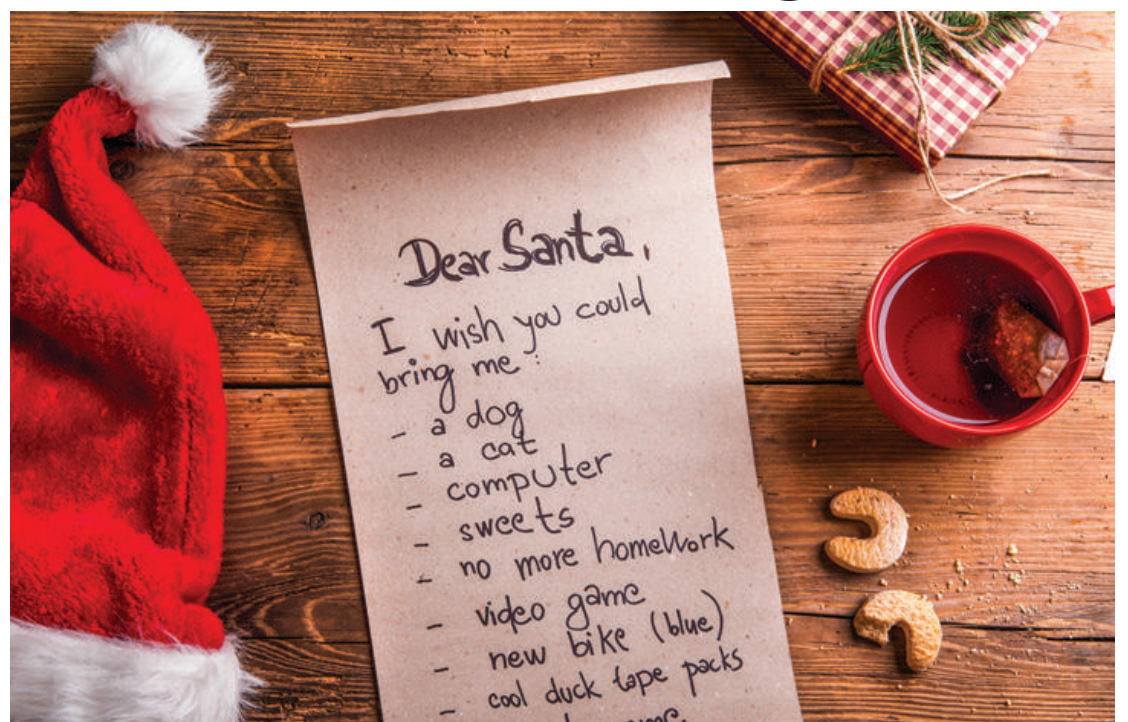 Dear Santa,
I wish you could
bring me :
- a dog
- a cat
- computer
- sweets
- no more homework
- video game
- new bike (blue)
- cool duck tape packs